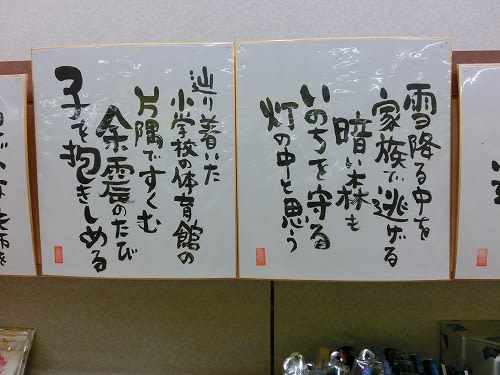 雪降る中を
家族で逃げる
暗い森も
いのちを守る
灯の中と思う
辿り着いた
小学校の体育館の
片隅ですくむ
余震のたび
子を抱きしめる